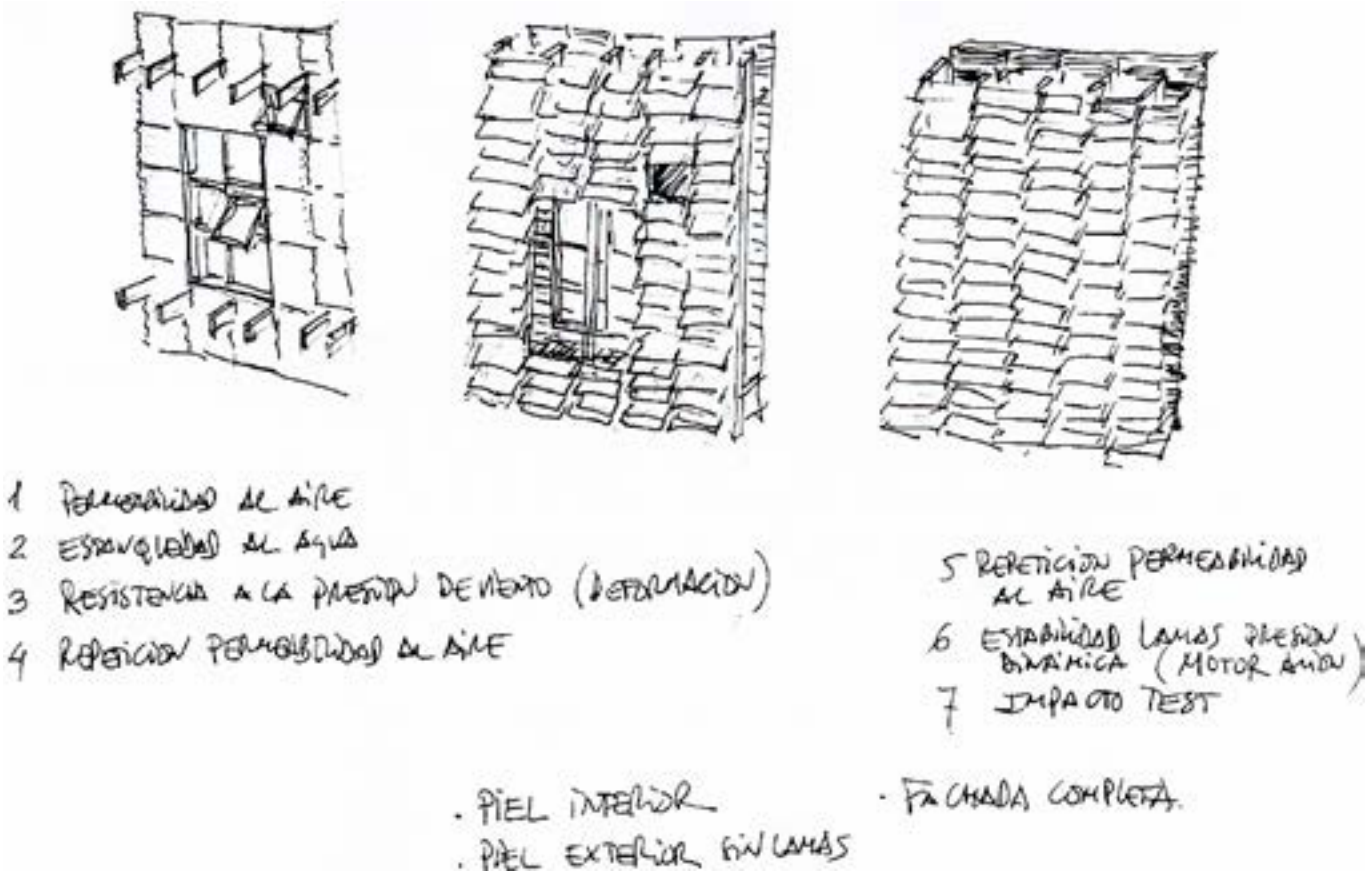 1 PERMEABILIDAD AL AIRE
2 ESTANQUEDAD AL AGUA
3 RESISTENCIA A LA PRESION DE VIENTO (DEFORMACION)
4 REPETICION PERMEABILIDAD AL AIRE
5 REPETICION PERMEABILIDAD
AL AIRE
6 ESTABILIDAD LAMAS PRESION
DINÁMICA (MOTOR AVION)
7 IMPACTO TEST
. PIEL INTERIOR
. PIEL EXTERIOR SIN LAMAS
. FACHADA COMPLETA.